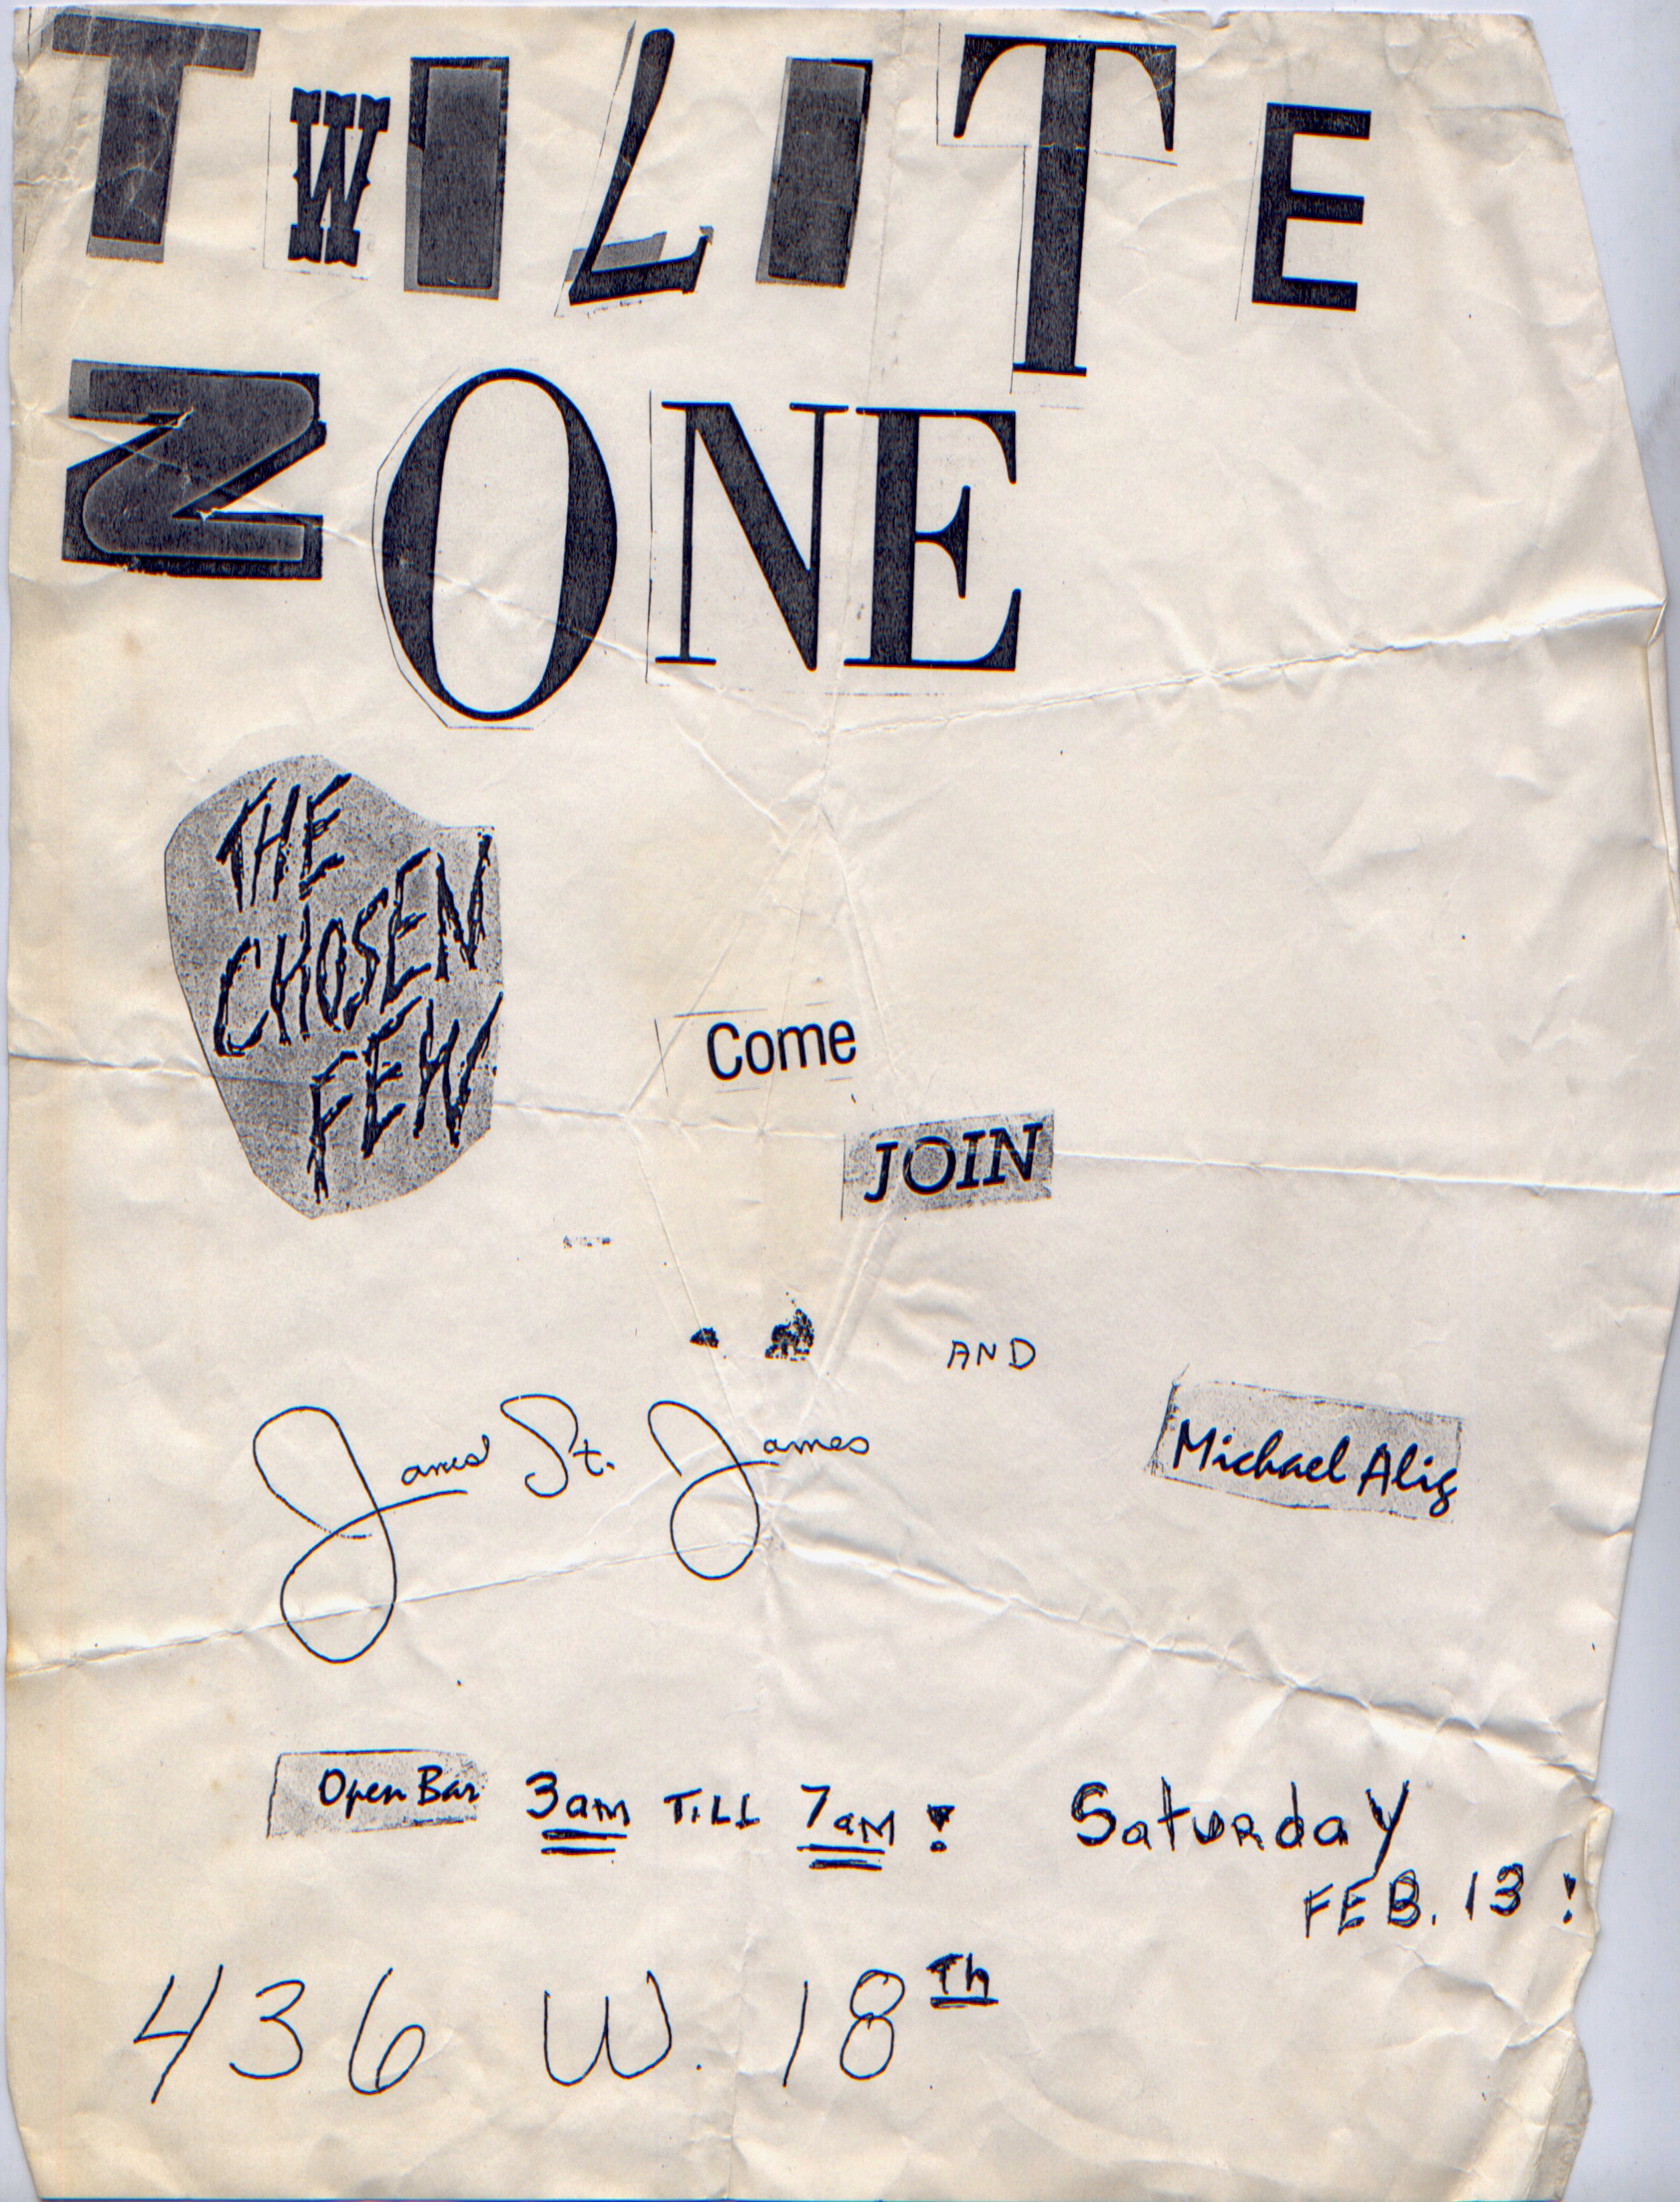 TWILITE
ZONE
THE
CHOSEN
FEW
Come
JOIN
AND
James St. James
Michael Alig
Open Bar 3am TILL 7aM! Saturday
FEB. 13!
436 W. 18Th